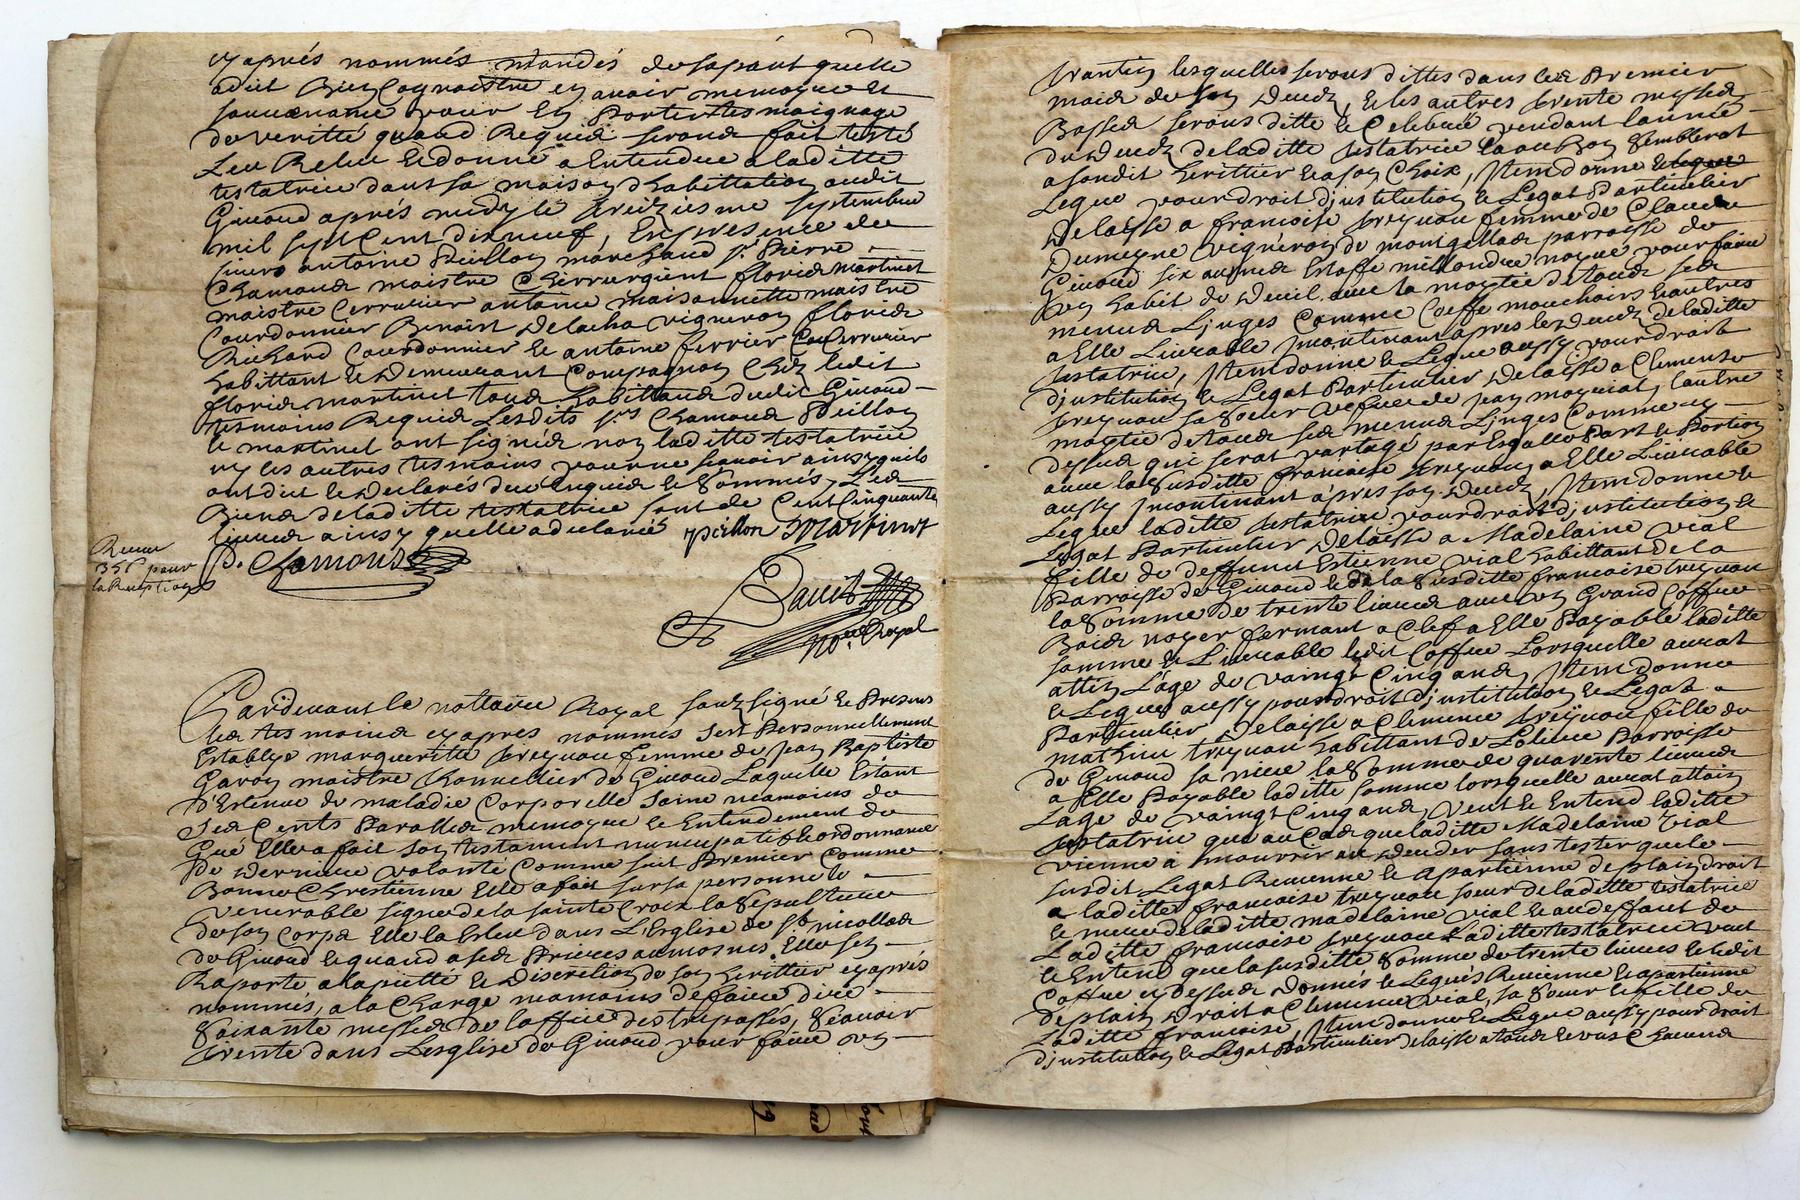 cy aprés nommés mandés de sa part quelle
a dit bien cognoistre en avoir memoyre et
souvenance pour en porter tesmoignage
de veritté quand requis seront fait testé
Leu Releu et donné a entendre a laditte
testatrice dans sa maison d'habittation audit
Givord aprés midy le treiziesme septembre
mil sept cent dix neuf, En presence de
sieurs antoine Peillon marchand sr. Pierre
Chamous maistre Chirrurgient floris martinet
maistre cerrurier antoine maisonnette maistre
Courdonnier Benoist Delacha vigneron floris
Richard Courdonnier et antoine ferrier Cerrurier
habittant et demeurant Compagnon Chez ledit
floris martinet tous habittans dudit Givord
tesmoins Requis Lesdits srs. Chamous Peillon
et martinet ont signés non laditte testatrice
ny les autres tesmoins pour ne scavoir ainsy quils
ont dit et declarés de ce enquis et sommés, Les
Biens de laditte testatrice sont de Cent Cinquante
livres ainsy quelle a declaré peillon Martinet
P. Chamous
no.re Royal
Pardevant le nottaire Royal soubsigné et presens
les tesmoins cy apres nommés sest personnellement
Establye margueritte treynau femme de jean Baptiste
Garon maistre de Givord Laquelle Estant
d'Estenue de maladie Corporelle saine neamoins de
ses cents parolles memoyre et Entendement de
Gré Elle a fait son testament nuncupatif et ordonnance
De derniere volonté comme suit Premier comme
Bonne Chrestienne Elle a fait sur sa personne le
venerable signe de la sainte Croix la sepulture
de son Corps Elle la Esleu dans L'Eglise de st. nicollas
de Givord et quand a ses Prieres aumosnes Elle sen
Raporte a la pietté et discretion de son herittier cy aprés
nommés, a la Charge neamoins de faire dire
soixante messes de l'office des trepassés, scavoir
trente dans Lesglise de Givord pour faire un
trantin lesquelles serons dittes dans les premier
mois de son decedz, et les autres trente messes
Basses serons ditte et celebré pendant lannée
du decedz de laditte testatrice la ou bon semblerat
a sondit herittier et a son Choix, Item donne et
Legue pour droit d'institution et Legat Particulier
delaisse a francoise treynau femme de Claude
Dumeyne vigneron de montgellas parroisse de
Givord six aunes Estoffe noyre pour faire
un habit de deuil avec la moytié de tous ses
menus Linges Comme Coeffe mouchoirs et autres
a Elle Livrable incontinant apres le decedz de laditte
testatrice, Item donne et Legue aussy pour droit
d'institution et Legat Particulier delaisse a Clemence
treynau sa soeur vefve de jean lautre
moytié de tous ses menus Linges Comme cy
dessus qui serat partagé par Esgalle Part et Portion
avec la susditte francoise treynau a Elle Livrable
aussy incontinant aprés son decedz, Item donne et
Legue laditte testatrice pour droit d'institution et
Legat Particulier delaisse a Madelaine vial
fille de deffunt Estienne vial habittant de la
Parroisse de Givord et de la susditte francoise treynau
la somme de trente livres avec un Grand Coffre
Bois noyer fermant a Clef a Elle Payable laditte
somme et Livrable ledit Coffre Lorsquelle aurat
attin L'age de vaingt Cinq ans, Item donne
et Legue aussy pour droit d'institution et Legat
Particulier delaisse a Clemence treynau fille de
mathieu treynau habittant de Parroisse
de Givord sa niece la somme de quarente livres
a Elle Payable laditte somme lorsquelle aurat attain
Lage de vaingt Cinq ans, veut et Entend laditte
testatrice que au Cas que laditte Madelaine vial
vienne a mourrir ou deceder sans tester que le
susdit Legat Revienne et apartienne de plain droit
a laditte francoise treynau soeur de laditte testatrice
et mere de laditte madelaine vial et au deffaut de
Laditte francoise treynau laditte testatrice veut
et Entend que la susditte somme de trente livres et ledit
Coffre cy dessus donnés et Legués Revienne et apartienne
de plain droit a Clemence vial, sa soeur et fille de
laditte francoise, Item donne et Legue aussy pour droit
d'institution et Legat Particulier delaisse a tous et uns Chacuns